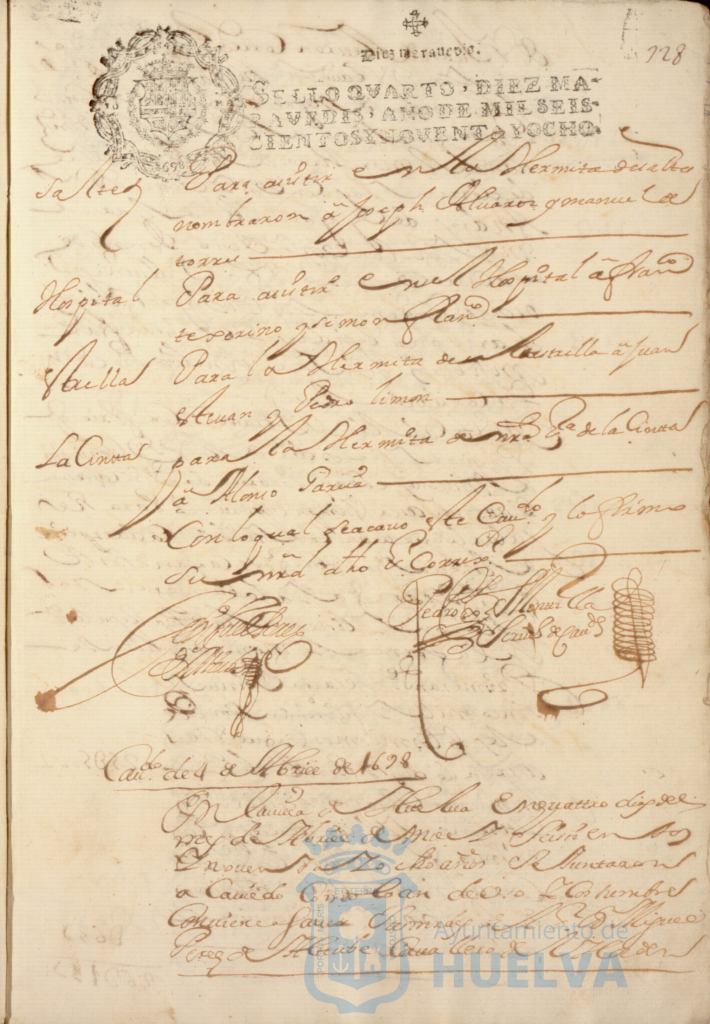 Diez maravedis.
128
SELLO QVARTO, DIEZ MA-
RAVEDIS, AÑO DE MIL SEIS-
CIENTOS Y NOVENTA Y OCHO.
Saltes Para asistir en la Hermita de saltes
nombraron â Joseph Albarez y manuel de
torres
Hospital Para asistir en el Hospital â Fran^co
y simon Fran^co
Estrella Para la Hermita de la estrella â Juan
esteuan y Pedro limon
La Cinta para la Hermita de nra S^ra de la Cinta
â Alonso Garcia
Con lo qual se acauo este Cau^do y lo firmo
su mrd dho S^r Corre^or
Pedro de
Scriu^o de Cau^do
Cau^do de 4 de Abril de 1698
En la uilla de Huelua En quattro dias del
mes de Abril de mil y seiscientos
y nouenta y ocho años se Juntaron
a Cauildo Como lo an de uso y costumbre
Conuiene a sauer D Miguel
Perez de Cauallero de
Ayuntamiento de
HUELVA